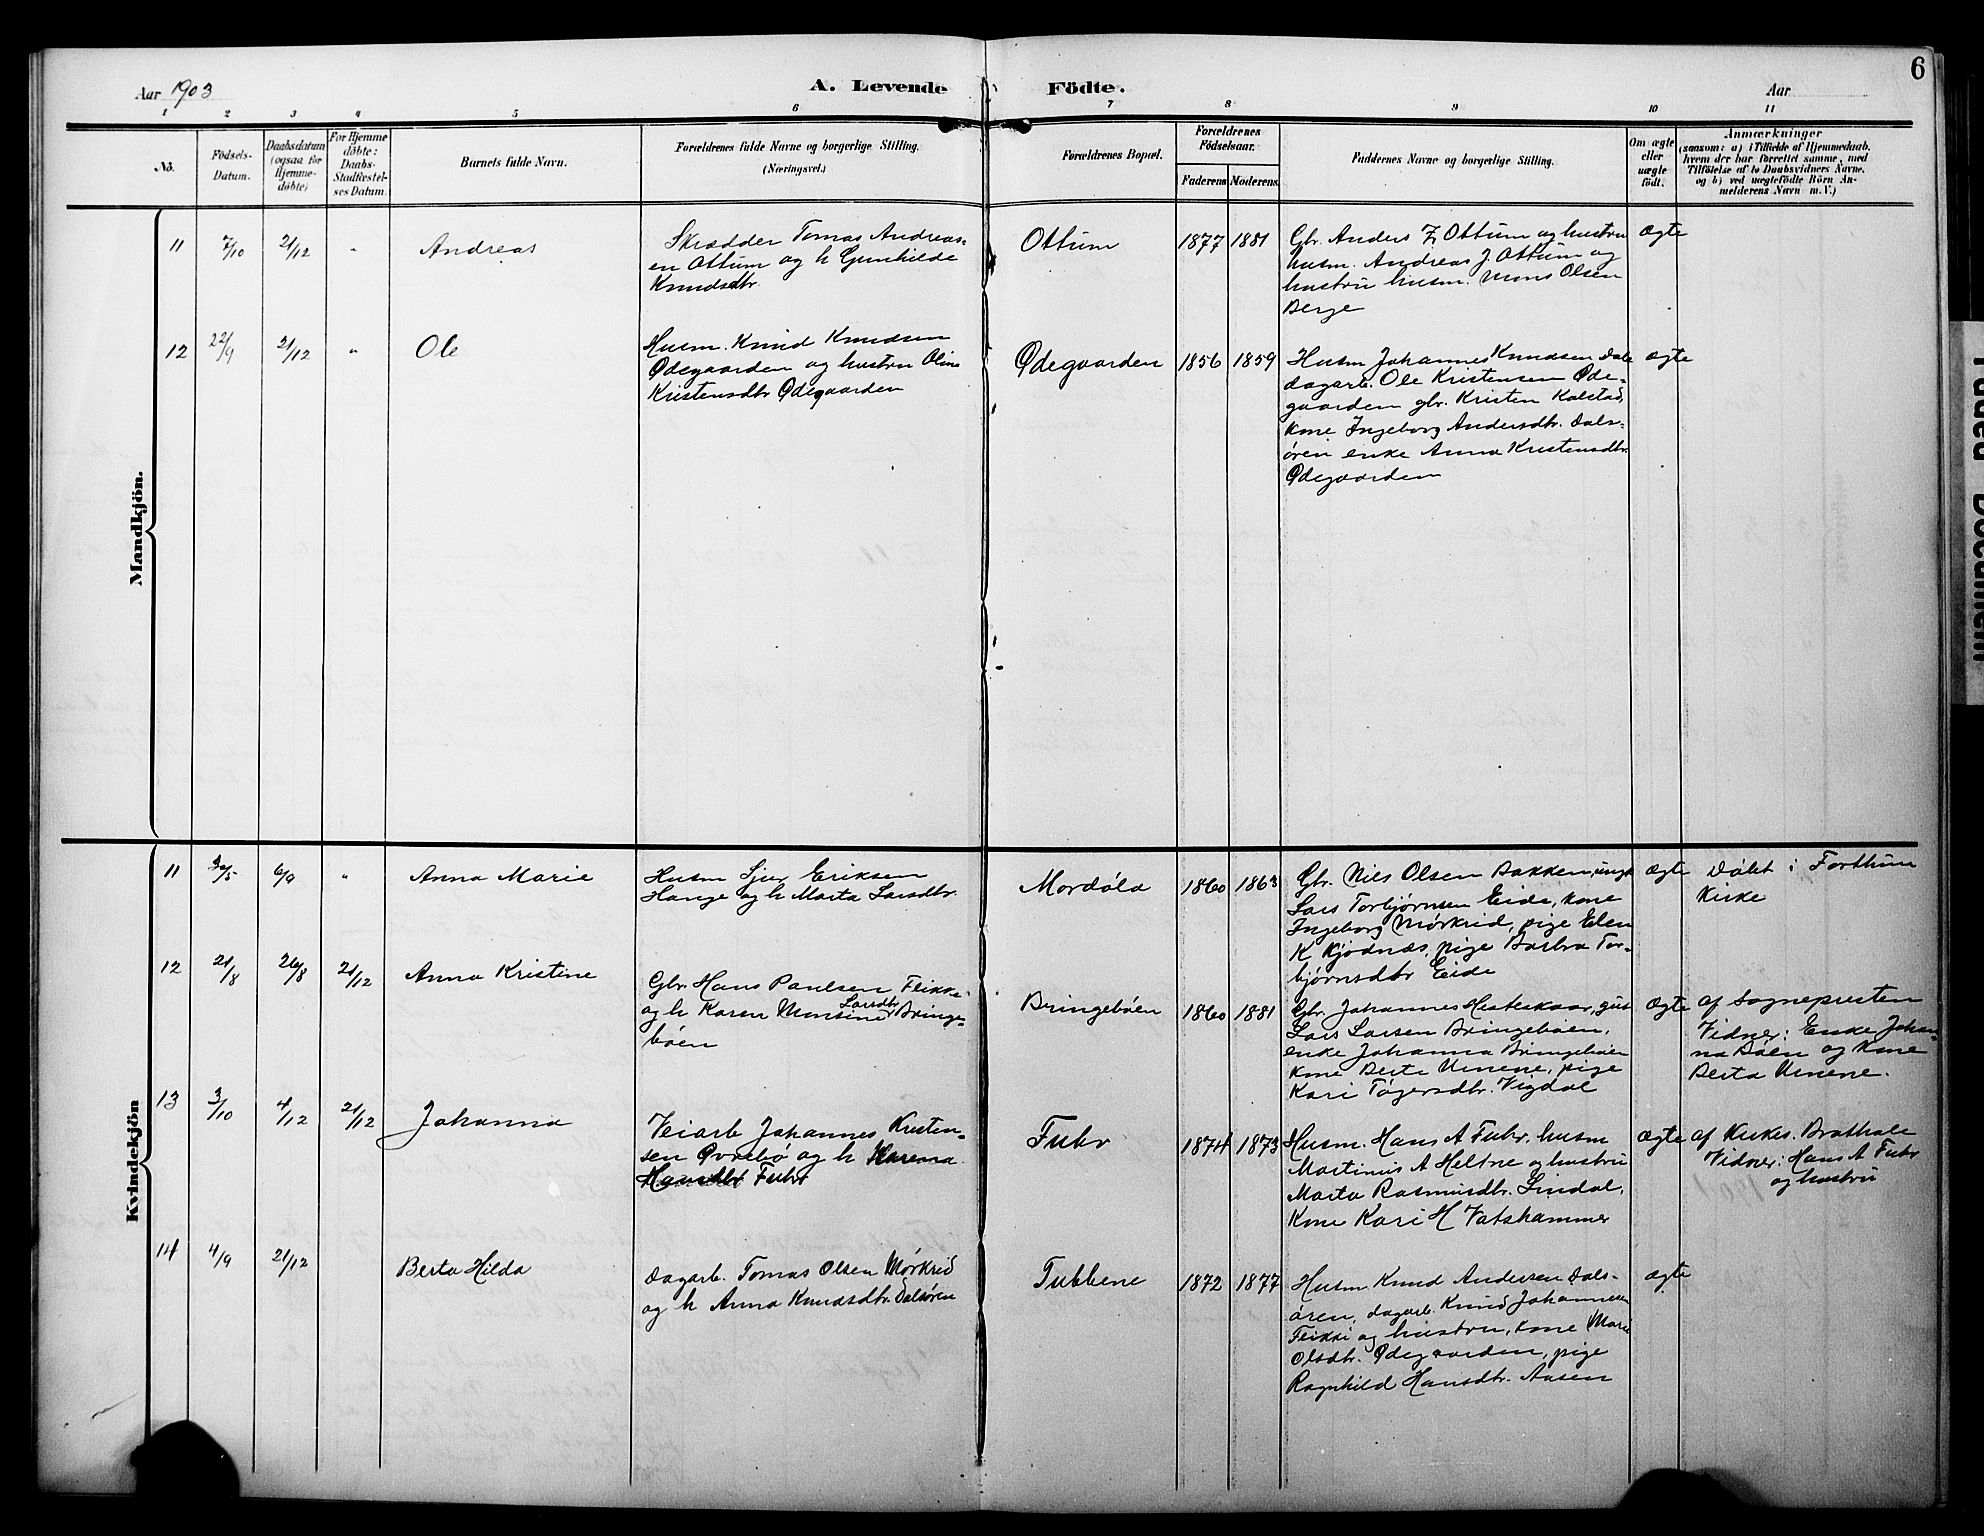 Aar 1903
A. Levende Födte.
Aar
6
1 2 3 4 5 6 7 8 9 10 11
No.
Födsels-Datum.
Daabsdatum (ogsaa for Hjemme-döbte)
For Hjemme döbte: Daabs-Stadfæstel-ses Datum.
Barnets fulde Navn.
Forældrenes fulde Navne og borgerlige Stilling.
(Næringsvei.)
Forældrenes Bopæl.
Forældrenes Födselsaar.
Faderens Moderens
Faddernes Navne og borgerlige Stilling.
Om ægte eller uægte födt.
Anmærkninger
(saasom: a) i Tilfælde af Hjemmedaab,
hvem der har forrettet samme, med
Tilföielse af to Daabsvidners Navne,
og b) ved uægtefödte Börn An-
melderens Navn m. V.)
Mandkjön.
11 7/10 21/12 " Andreas
Skrædder Tomas Andreas-
en Ottum og h Gunhilde
Knudsdtr.
Ottum 1877 1881
Gbr. Anders Z Ottum og hustru
husm. Andreas J Ottum og
hustru husm. Mons Olsen
Berge
ægte
12 22/9 21/12 " Ole
Husm. Knud Knudsen
Ødegaarden og hustru Oline
Kristensdtr Ødegaarden
Ødegaarden 1856 1859
Husm Johannes Knudsen Dale
dagarb. Ole Kristensen Øde-
gaarden gbr. Kristen Kolstad,
kone Ingeborg Andersdtr. Dals-
ören enke Anna Kristensdtr.
Ødegaarden
ægte
Kvindekjön
11 30/5 6/9 " Anna Marie
Husm Sjur Eriksen
Hauge og h Marta Larsdtr.
Mordøla 1860 1863
Gbr. Nils Olsen Bakken, ungk
Lars Torbjørnsen Eide, kone
Ingeborg Mørkrid, pige Elen
K Kjødnæs, pige Barbra Tor-
bjørnsdtr Eide
ægte
Døbt i Forthun
Kirke
12 21/8 26/8 21/12 Anna Kristine
Gbr. Hans Paulsen Feikke-
og h Karen Monsine Larsdtr Bringe-
bøen
Bringebøen 1860 1881
Gbr. Johannes Hestekaar, gut
Lars Larsen Bringebøen,
enke Johanna Bringebøen
kone Berte Urnene, pige
Kari Tøgersdtr. Vigdal
Ægte
af Sognepresten
Vidner: Enke Johan-
na Bøen og kone
Berta Urnene.
13 3/10 4/12 21/12 Johanna
Veiarb Johannes Kristen-
sen Øvrebø og h Karenna
Hansdtr Fuhr
Fuhr 1874 1873
Husm. Hans A Fuhr, husm
Martinus A Heltne og hustru
Marta Rasmusdtr. Lindal,
Kone Kari H Vatshammer
ægte
af Kirkes. Brathole
Vidner: Hans A Fuhr
og hustru
14 4/9 21/12 Berta Hilda
Dagarb. Tomas Olsen Mørkrid
og h Anna Knudsdtr. Dalsøren
Tubbene 1872 1877
Husm Knud Andersen Dals-
ören, dagarb. Knud Johannesen
Feikki og hustru, kone Marie
Olsdtr. Ødegaarden, pige
Ragnhild Hansdtr. Aasen
ægte